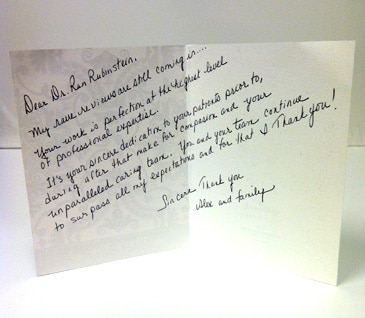 Dear Dr. Ran Rubinstein,
My rave reviews are still coming in....
Your work is perfection at the highest level
of professional expertise.
It's your sincere dedication to your patients prior to,
during after that make for compasion and your
unparalleled caring team. You and your team continue
to surpass all my expectations and for that I Thank you!
Sincere Thank you
Alex and family